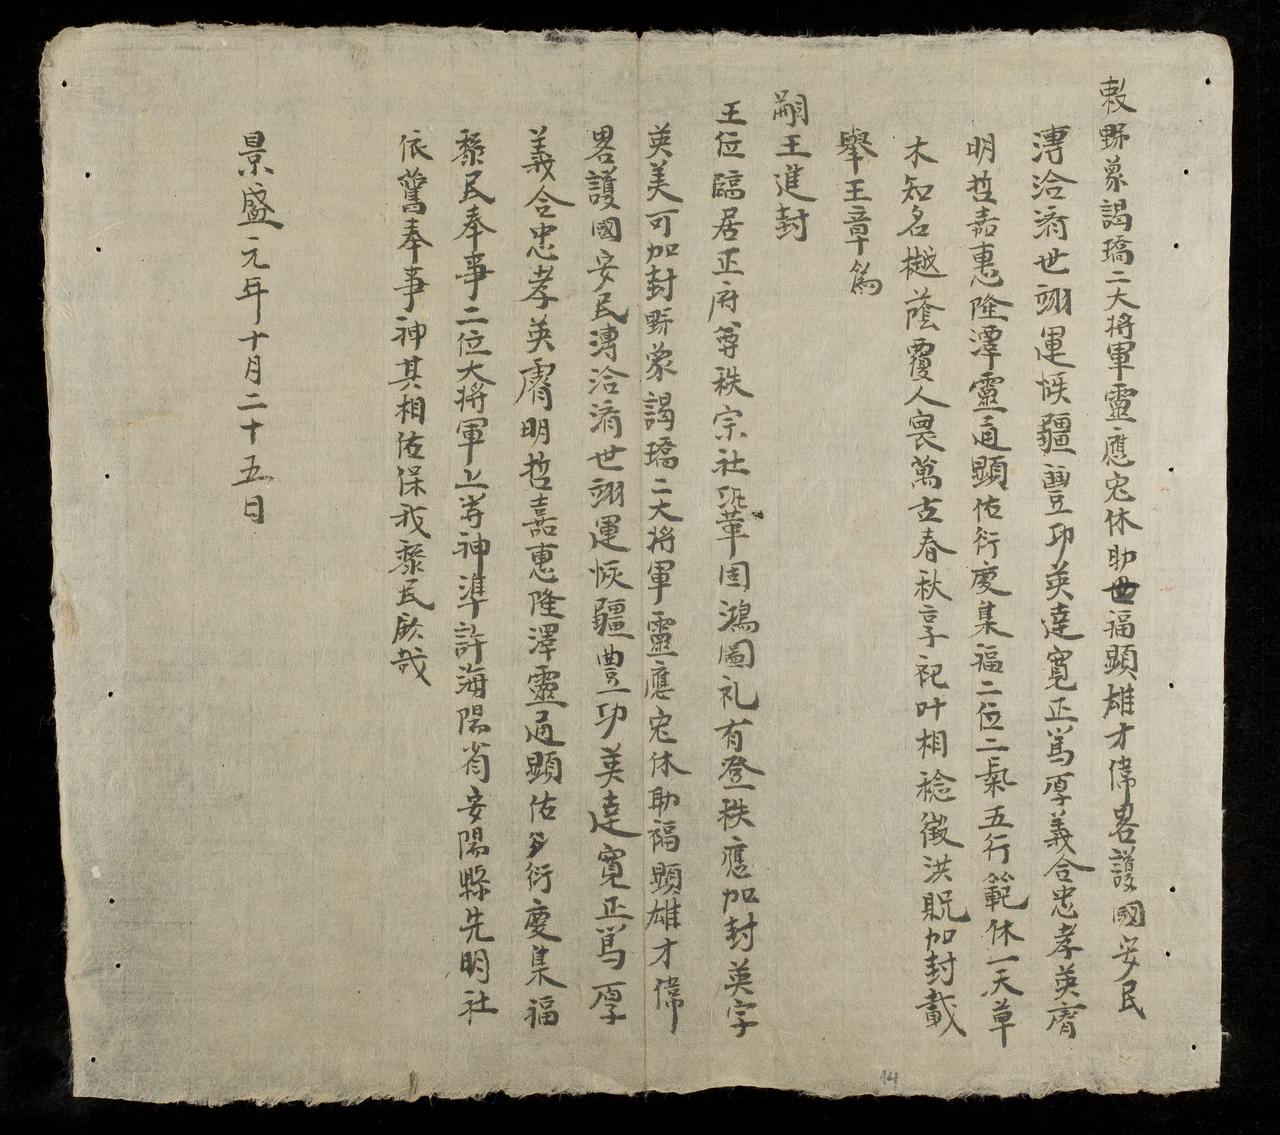 敕野象謁璚二大將軍靈應宏休助世福顯雄才偉畧護國安民
溥洽濟世翊運恢疆豐功英達寬正篤厚義合忠孝英膚
明哲嘉惠隆澤靈通顯佑衍慶集福二位二氣五行範休一天草
木知名樾蔭覆人畏萬古春秋享祀叶相稔徵洪貺加封載
舉王章爲
嗣王進封
王位臨居正府尊秩宗社鞏固鴻圖礼有登秩應加封英字
英美可加封野象謁璚二大將軍靈應宏休助福顯雄才偉
畧護國安民溥洽濟世翊運恢疆豐功英達寬正篤厚
義合忠孝英膚明哲嘉惠隆澤靈通顯佑衍慶集福
黎民奉事二位大將軍上等神準許海陽省安陽縣先明社
依舊奉事神其相佑保我黎民欽哉
景盛元年十月二十五日
14